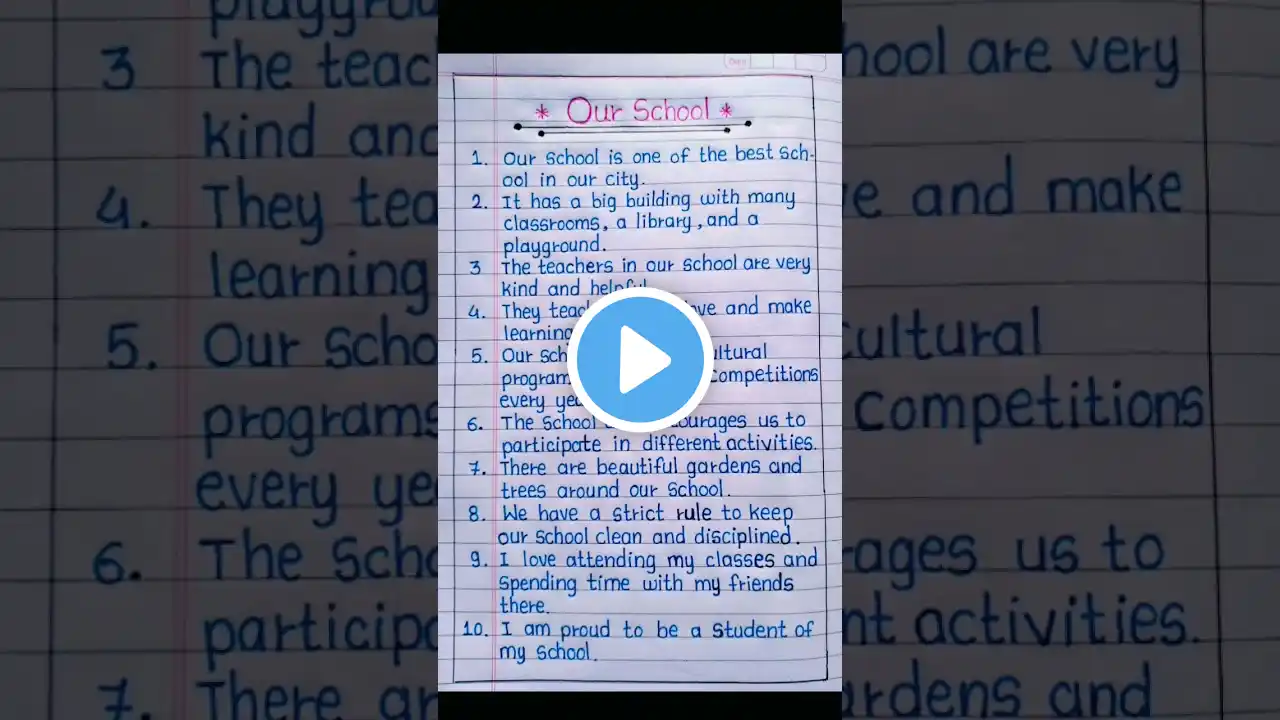 * Our School *
1. Our School is one of the best sch-
ool in our city.
2. It has a big building with many
classrooms, a library, and a
playground.
3 The teachers in our School are very
kind and helpful
4. They and make
learning
5. Our cultural
programs competitions
every
6. The School us to
participate in different activities.
7. There are beautiful gardens and
trees around our School.
8. We have a strict rule to keep
our School clean and disciplined.
9. I love attending my classes and
Spending time with my friends
there.
10. I am proud to be a Student of
my School.